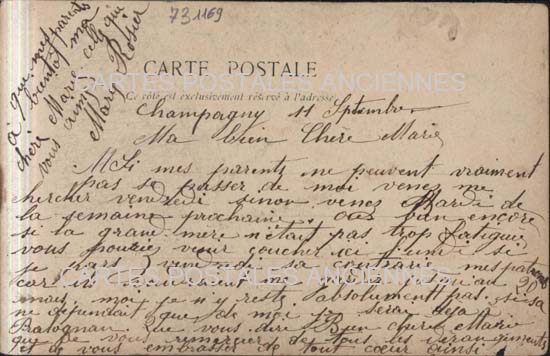 731169
CARTE POSTALE
Ce côté est exclusivement réservé à l'adresse
CARTES POSTALES ANCIENNES
Champagny 11 Septembre
Ma bien Chère Marie
Si mes parents ne peuvent vraiment
pas se passer de moi venez me
chercher vendredi sinon venez Mardi de
la semaine prochaine ou bien encore
si la grand mère n'était pas trop fatiguée
vous pouriez venir coucher ici jeudi si
je pars vendredi
mais moi je n'y reste absolument pas si sa
ne dependait que de moi je serai deja a
Pralognan que vous dire Bien chère Marie
que de vous remercier de tous les derangements
et de vous embrasser de tout coeur aussi
CARTES POSTALES ANCIENNES
à que mes parents
bientot ma
chère Marie celle qui
vous aime
Mary Rosier